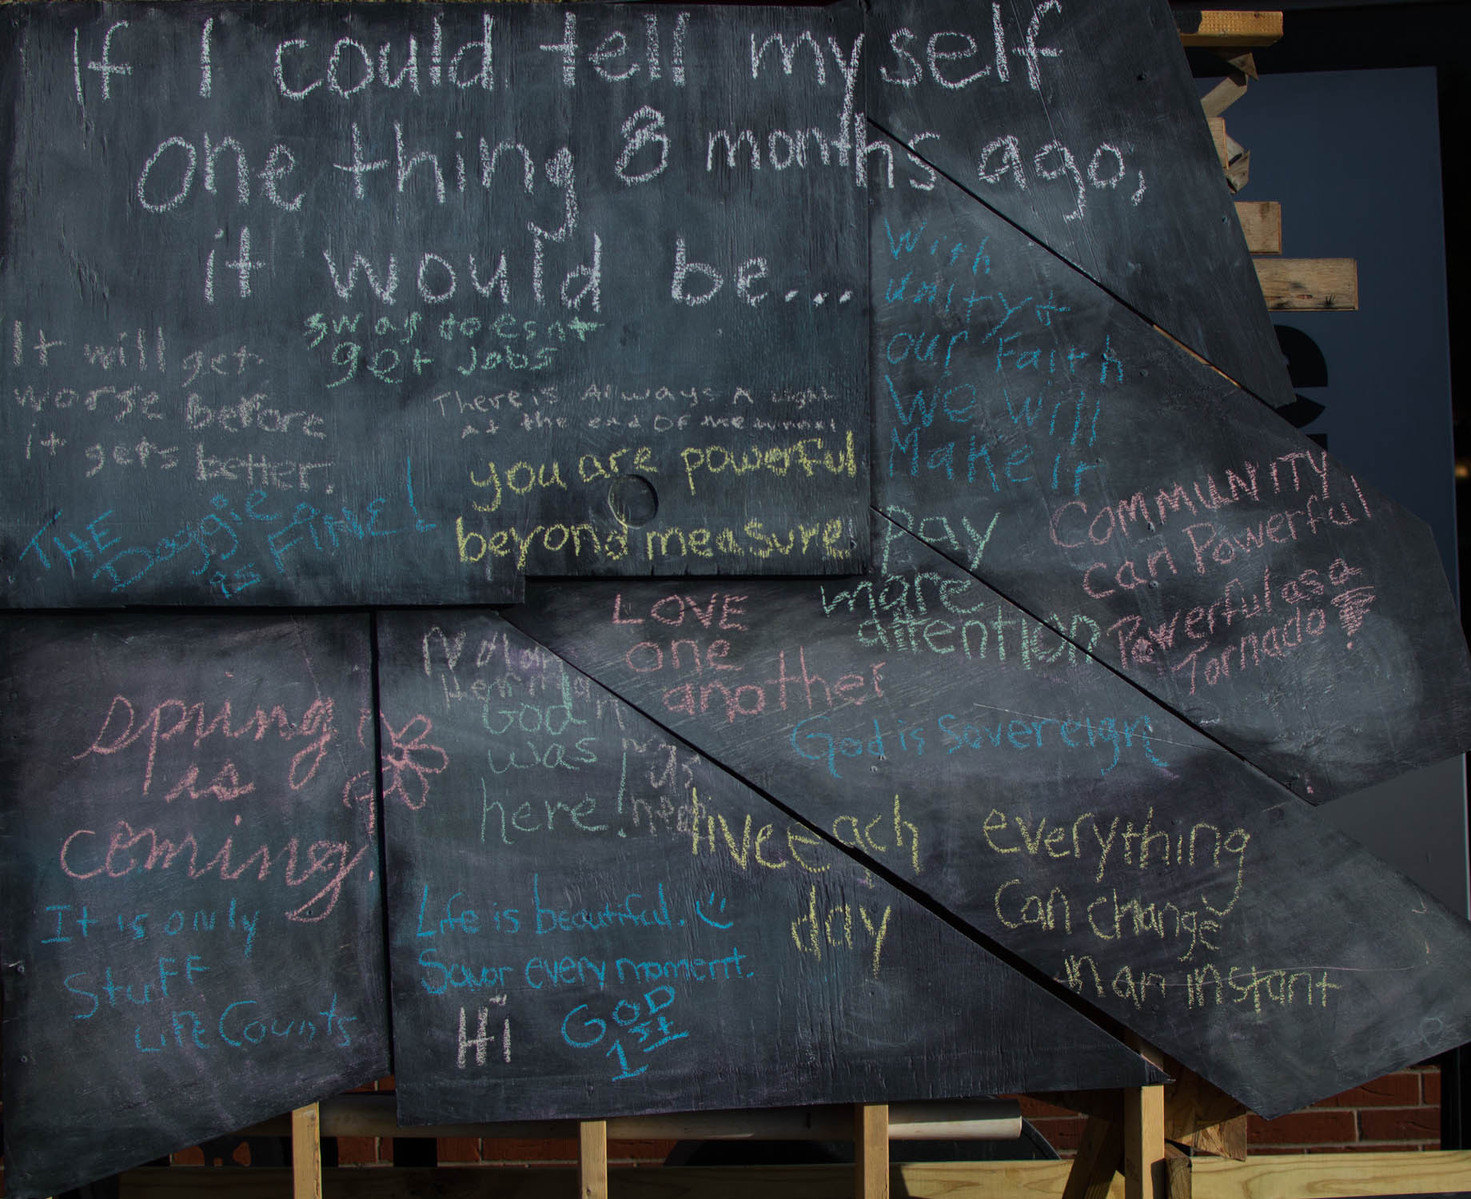 If I could tell myself
one thing 8 months ago,
it would be...
It will get
worse before
it gets better.
swag doesnt
get Jobs
There is Always A Light
At the end OF the tunnel
you are powerful
beyond measure
THE
Doggie
is FINE!
With
unity +
our Faith
We will
Make it
pay
more
attention
COMMUNITY
can Powerful
Powerful as a
Tornado!
LOVE
one
another
God is Sovereign
spring
is
coming!
It is only
StuFF
Life Counts
God
was
here!
live each
day
everything
Can change
in an instant
Life is beautiful.
Savor every moment.
Hi
GOD
1st